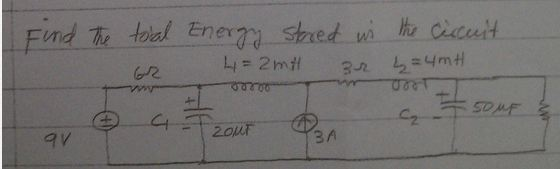 Find The total Energy stored in the circuit
6Ω L1 = 2mH 3Ω L2 = 4mH
+ +
9V C1 - 20µF 3A C2 - 50µF